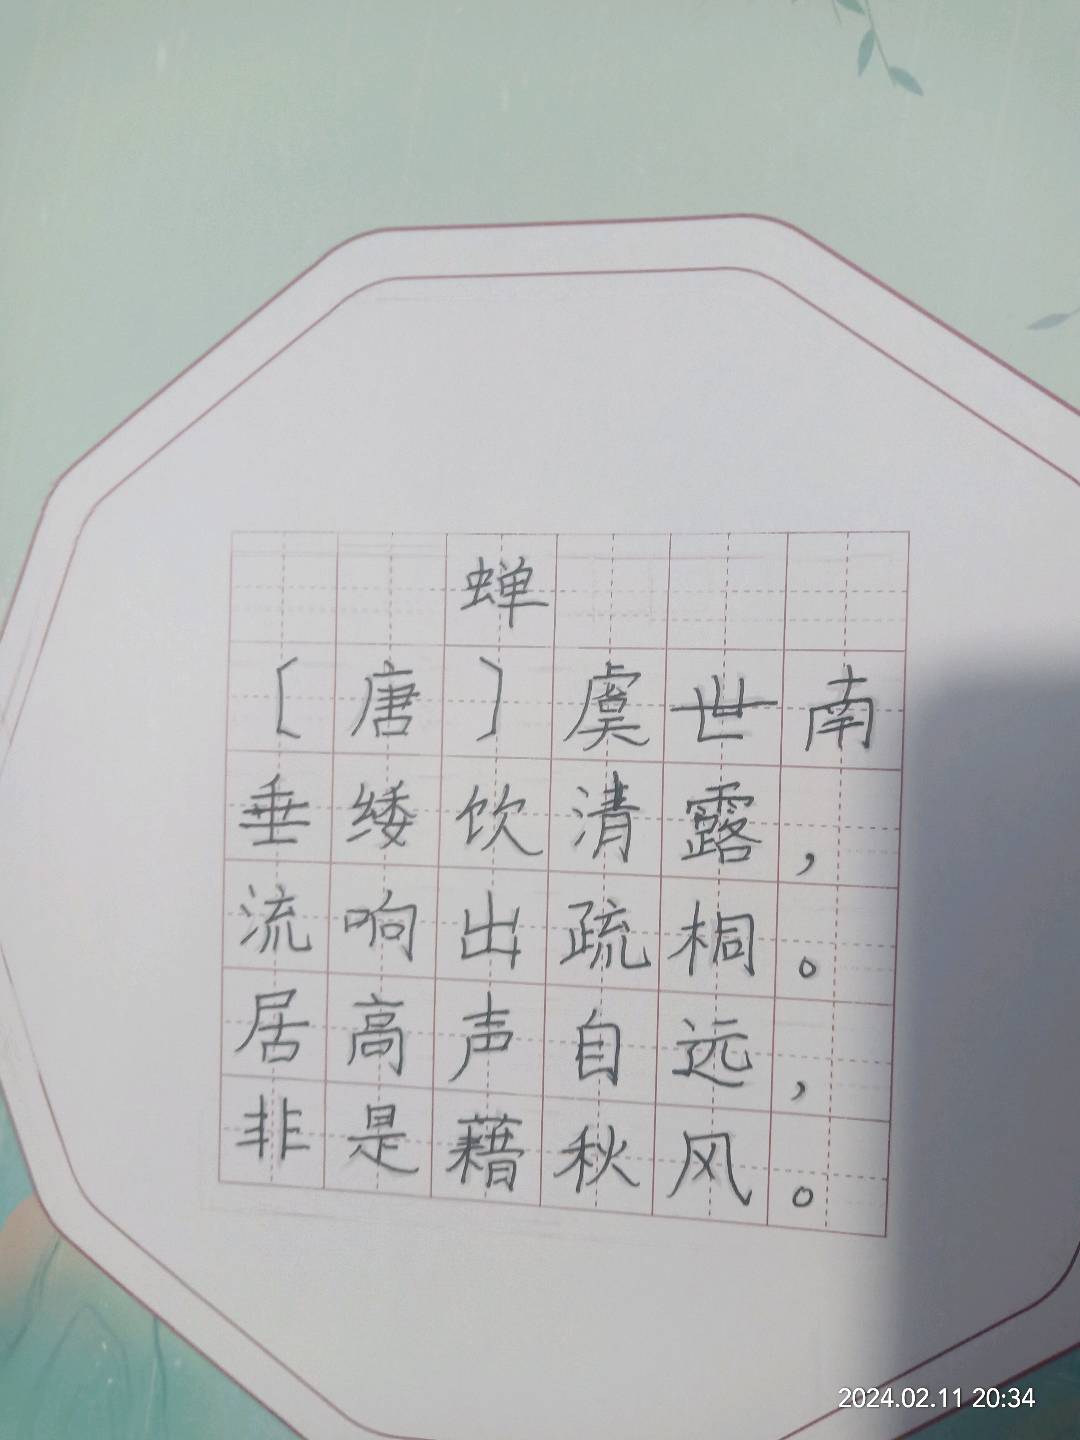 蝉
〔唐〕虞世南
垂緌饮清露，
流响出疏桐。
居高声自远，
非是藉秋风。
2024.02.11 20:34